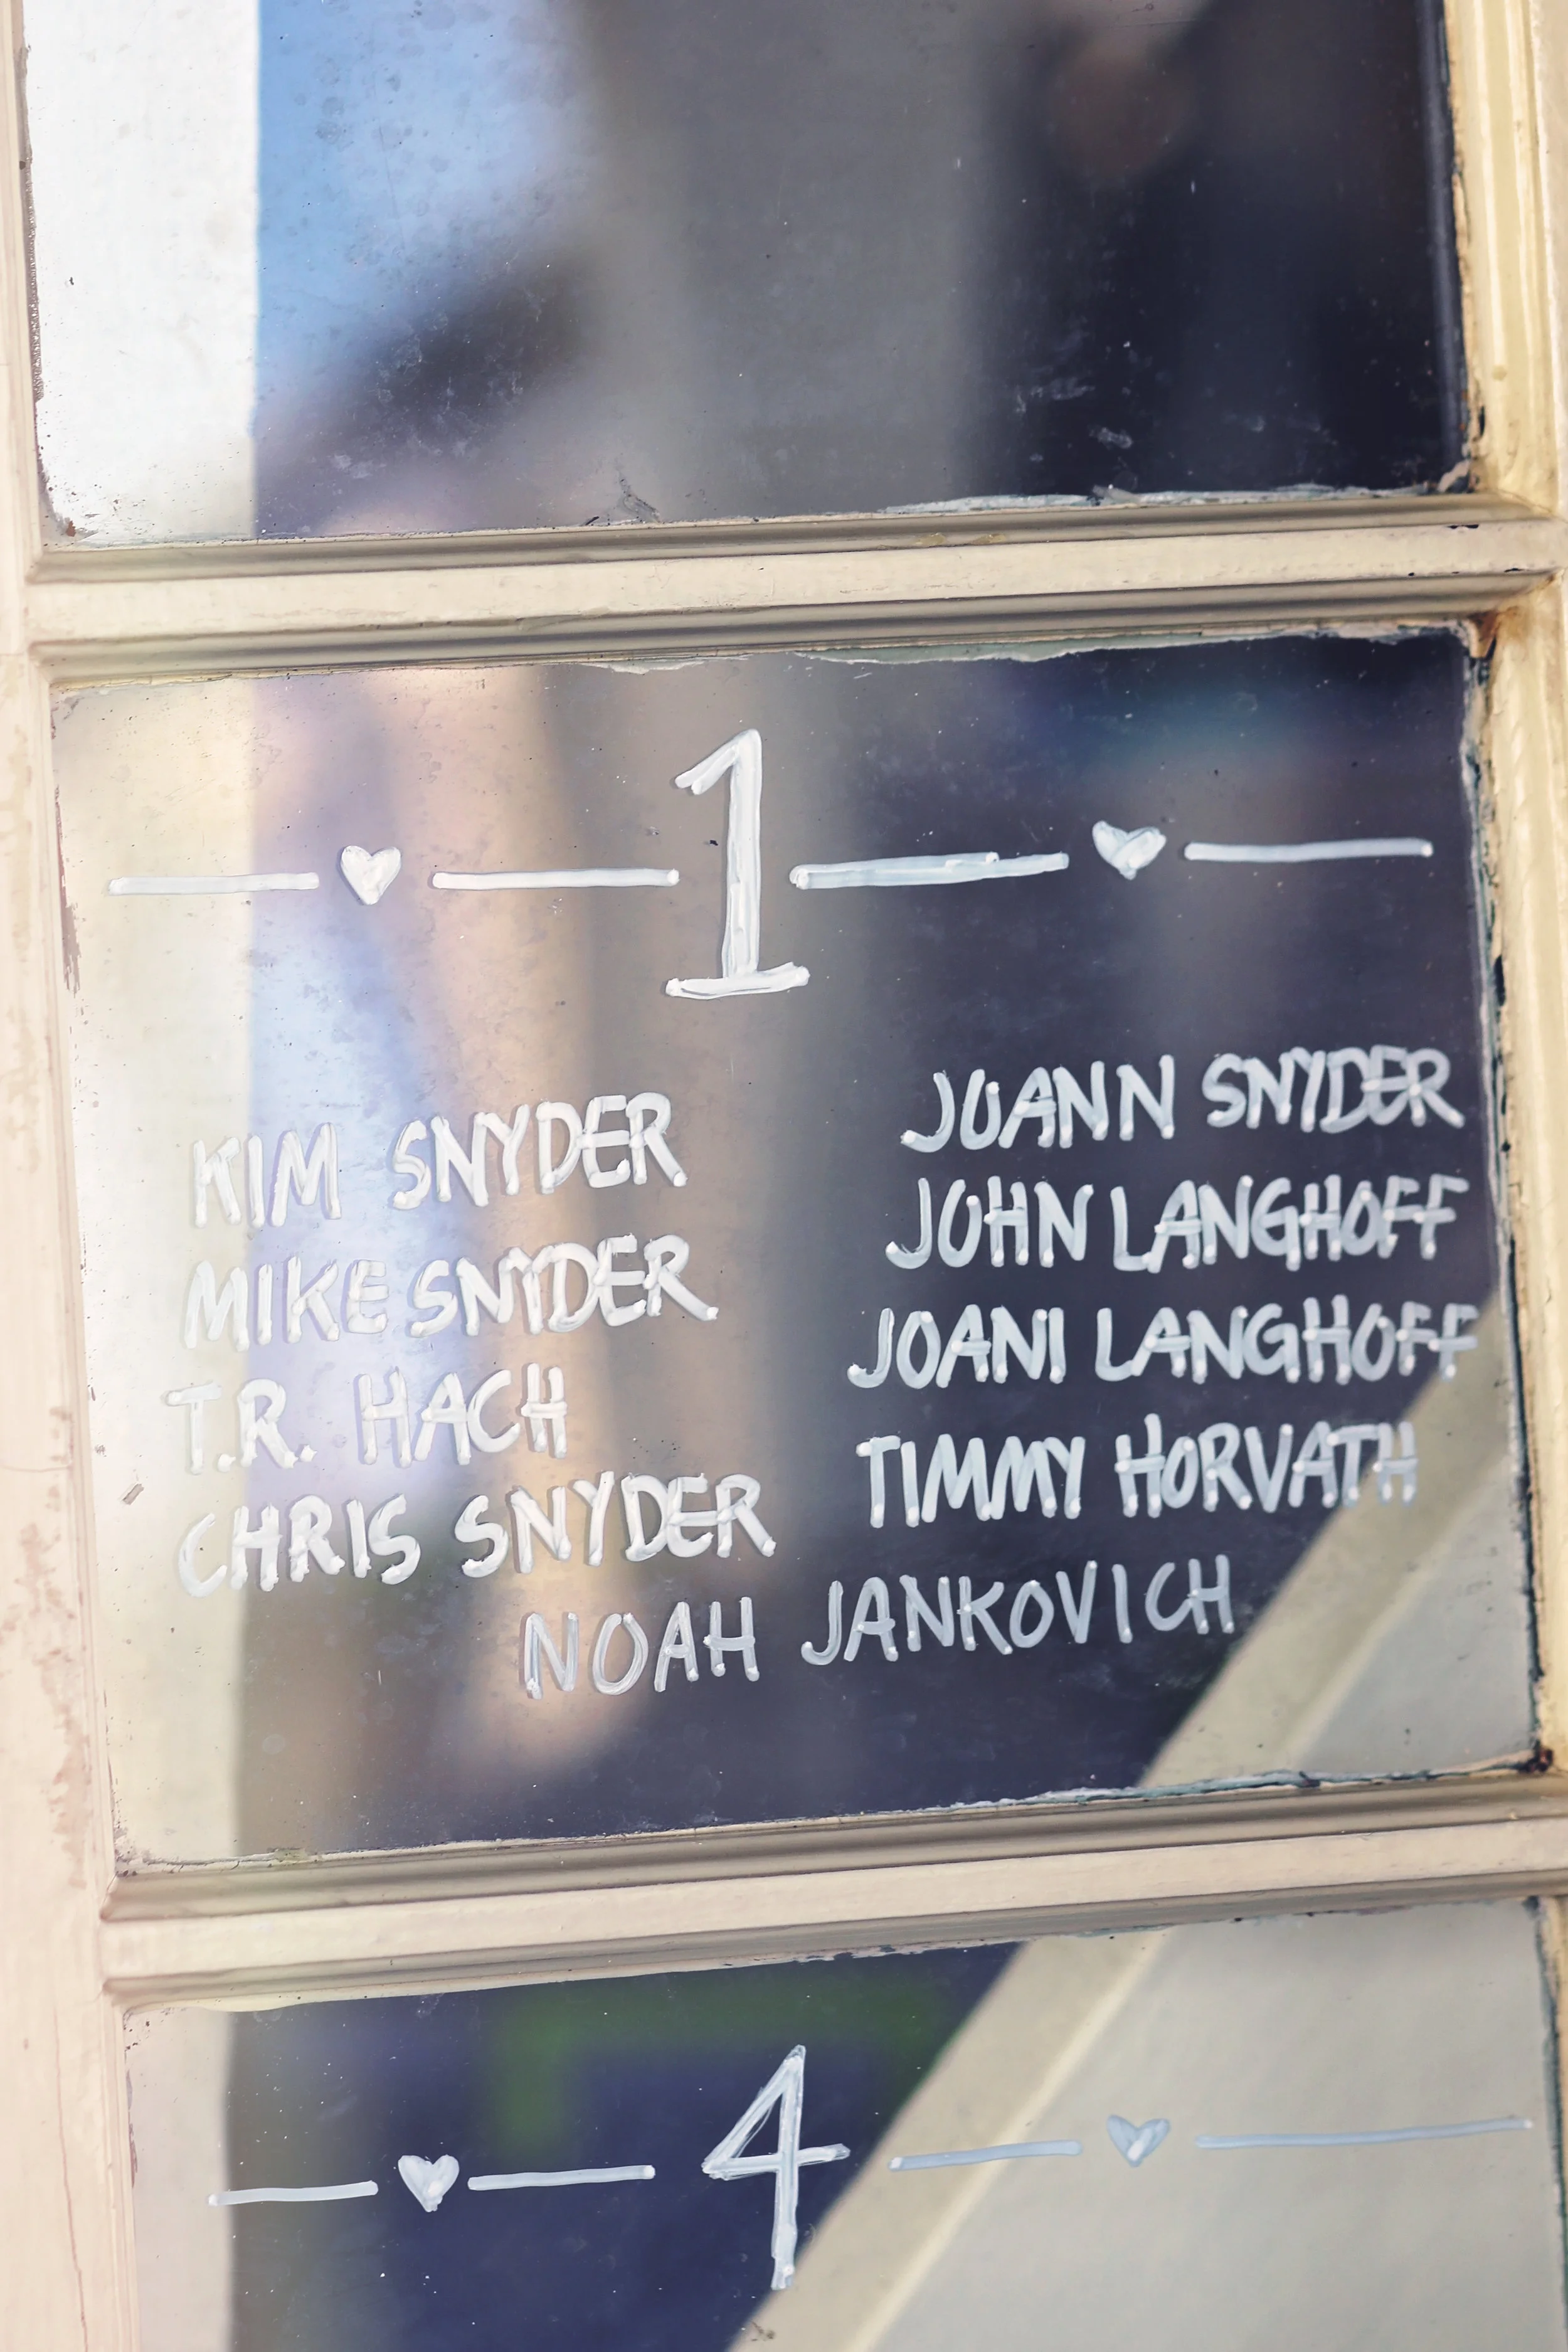 1
KIM SNYDER
MIKE SNYDER
T.R. HACH
CHRIS SNYDER
JOANN SNYDER
JOHN LANGHOFF
JOANI LANGHOFF
TIMMY HORVATH
NOAH JANKOVICH
4